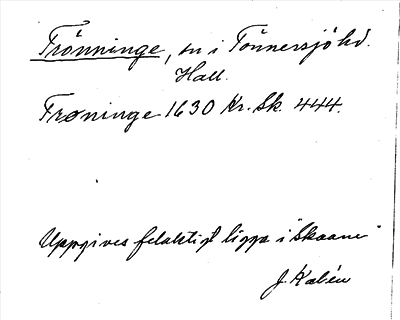 Trönninge, sn i Tönnersjö hd.
Hall.
Frøninge 1630 Kr. Sk. 444.
Uppgives felaktigt ligga i "Skaane"
J. Kalén